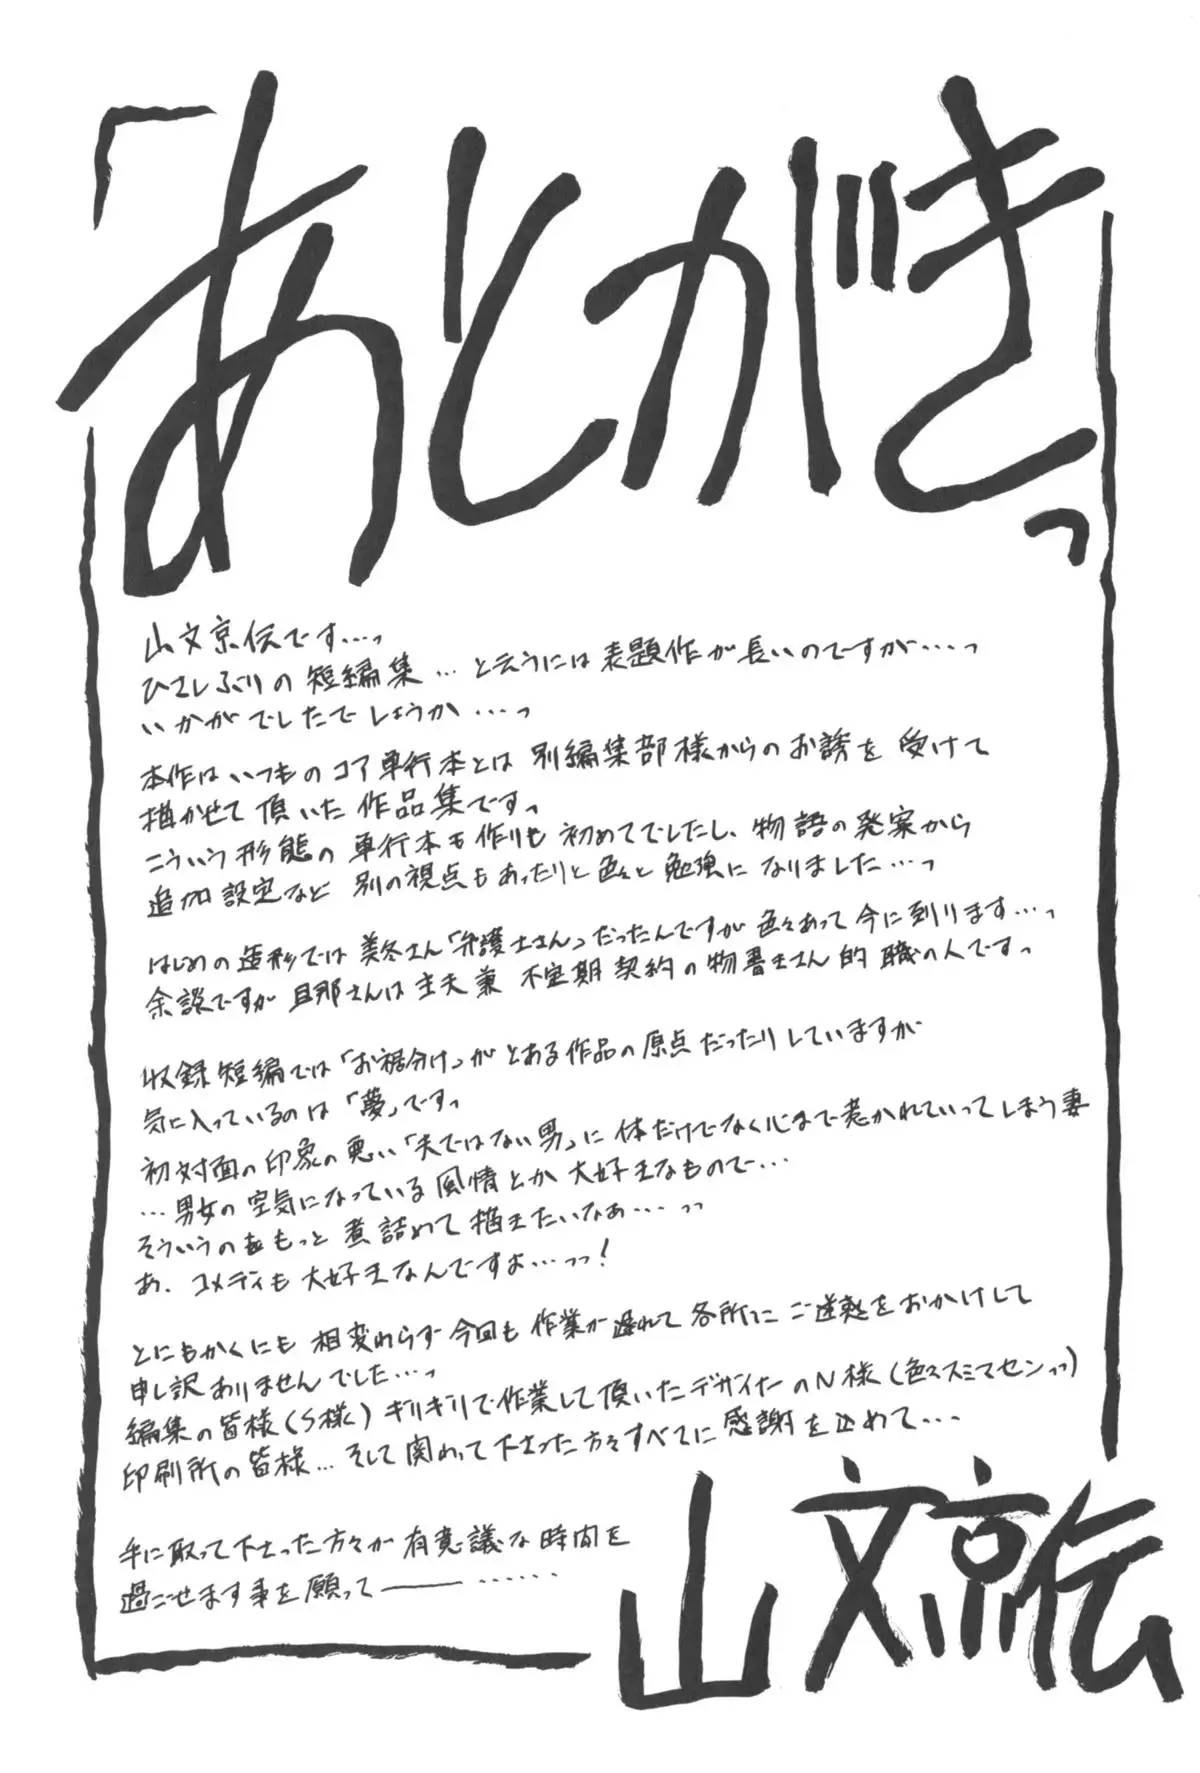 「あとがきっ
山文京伝です…っ
ひさしぶりの短編集…と云うには表題作が長いのですが…っ
いかがでしたでしょうか…っ
本作はいつものコア単行本とは別編集部様からのお誘を受けて
描かせて頂いた作品集ですっ
こういう形態の単行本も作りも初めてでしたし、物語の発案から
追加設定など別の視点もあったりと色々と勉強になりました…っ
はじめの造形では美冬さん「弁護士さん」だったんですが色々あって今に到ります…っ
余談ですが旦那さんは主夫兼不定期契約の物書きさん的職の人ですっ
収録短編では「お裾分け」がとある作品の原点だったりしていますが
気に入っているのは「夢」ですっ
初対面の印象の悪い「夫ではない男」に体だけでなく心まで惹かれていってしまう妻
…男女の空気になっている風情とか大好きなもので…
そういうのをもっと煮詰めて描きたいなぁ…っっ
あ、コメディも大好きなんですよ…っっ！
とにもかくにも相変わらず今回も作業が遅れて各所っにご迷惑をおかけして
申し訳ありませんでした…っ
編集の皆様(S様)ギリギリで作業して頂いたデザイナーのN様(色々スミマセンっっ)
印刷所の皆様…そして関わって下さった方々すべてに感謝を込めて…
手に取って下さった方々が有意議な時間を
過ごせます事を願って――……
山文京伝